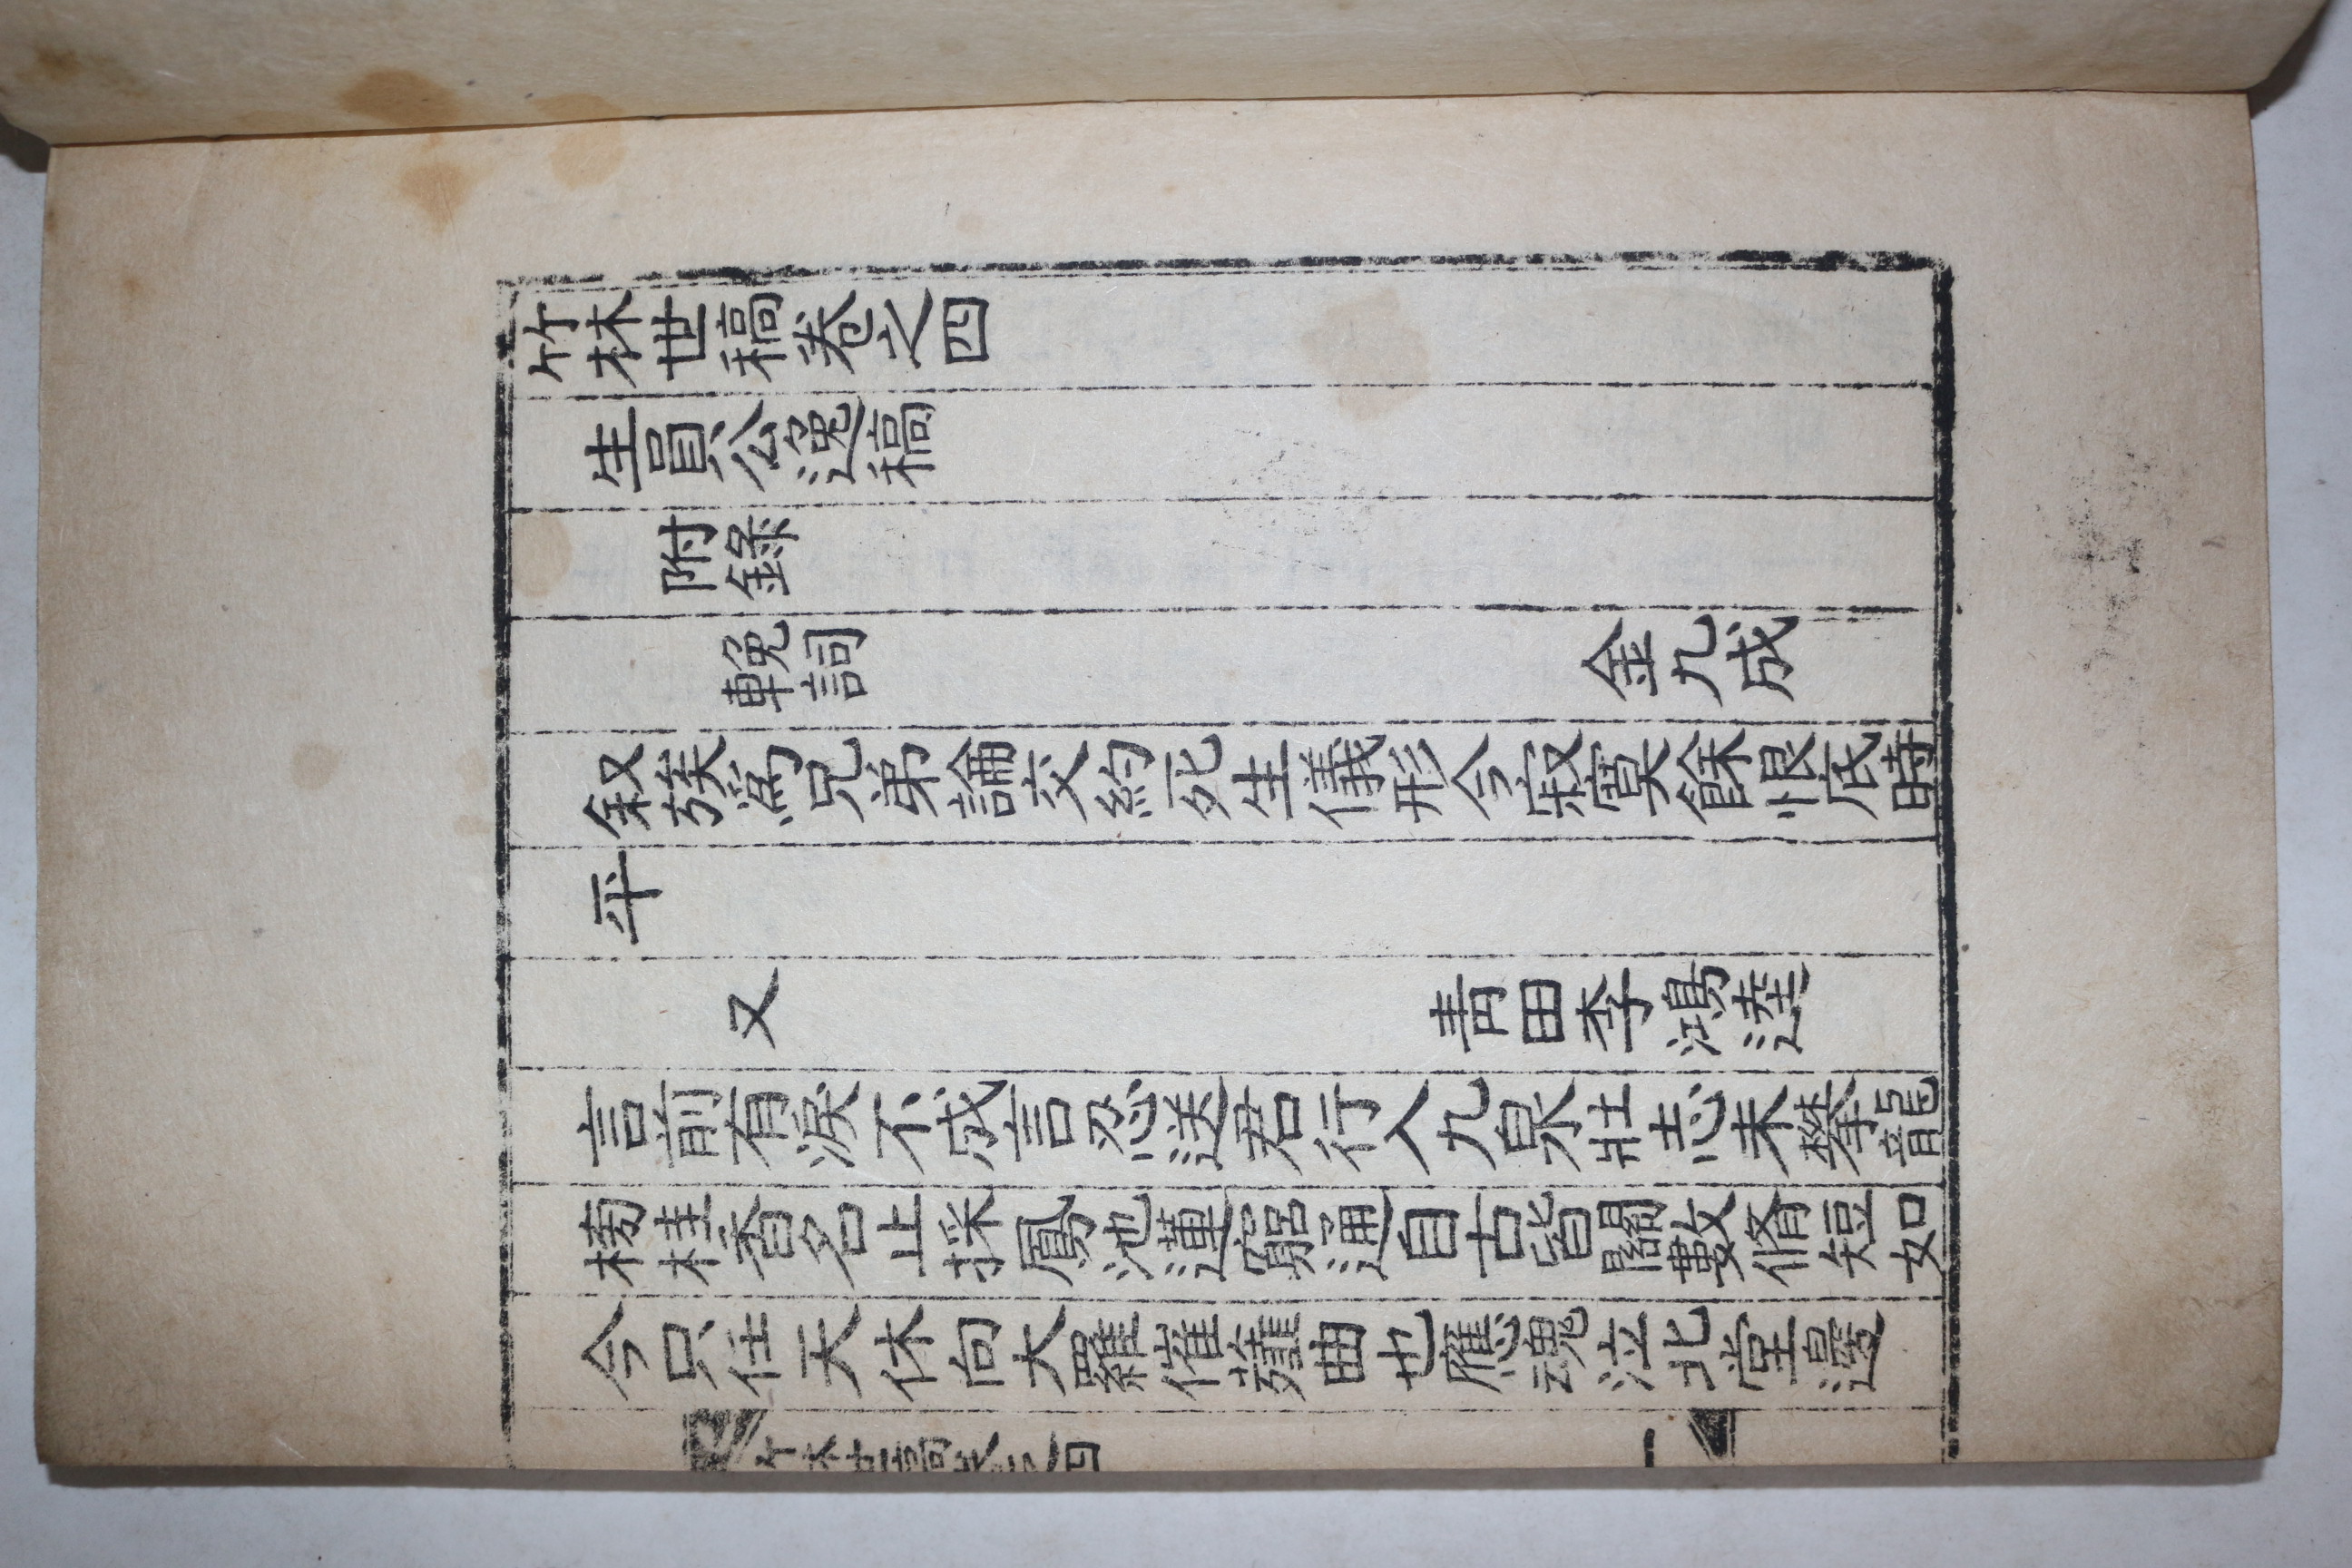 竹林世稿卷之四
生員公逸稿
附錄
輓詞 金九成
叙族爲兄弟論交約死生儀形今寂寞餘恨底時
平
又 青田李鴻逵
言前有淚不成言忍送君行人九泉壯志未攀龍
樹桂香名止採鳳池蓮窮通自古皆關數脩短如
今只任天休向大羅催鶴曲也應魂泣北堂邊
竹林世稿卷之四 一